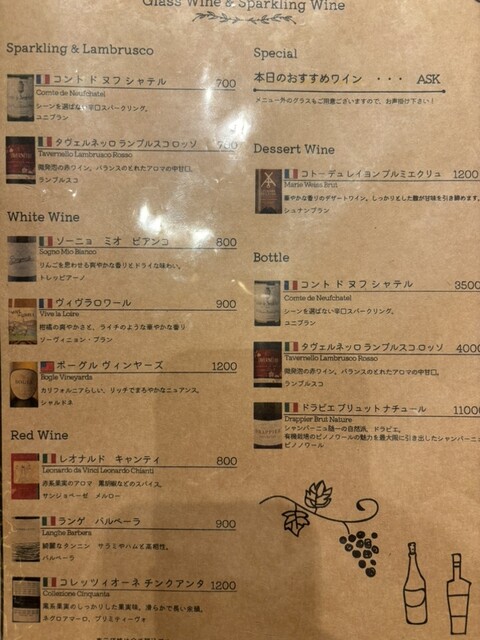 Glass Wine & Sparkling Wine
Sparkling & Lambrusco
コント ド ヌフ シャテル 700
Comte de Neufchatel
シーンを選ばない辛口スパークリング。
ユニブラン
タヴェルネッロ ランブルスコ ロッソ 700
Tavernello Lambrusco Rosso
微発泡の赤ワイン。バランスのとれたアロマの中甘口。
ランブルスコ
White Wine
ソーニョ ミオ ビアンコ 800
Sogno Mio Bianco
りんごを思わせる爽やかな香りとドライな味わい。
トレッビアーノ
ヴィヴラロワール 900
Vive la Loire
柑橘の爽やかさと、ライチのような華やかな香り
ソーヴィニョン・ブラン
ボーグル ヴィンヤーズ 1200
Bogle Vineyards
カリフォルニアらしい、リッチでまろやかなニュアンス。
シャルドネ
Red Wine
レオナルド キャンティ 800
Leonardo da Vinci Leonardo Chianti
赤系果実のアロマ 黒胡椒などのスパイス。
サンジョベーゼ メルロー
ランゲ バルベーラ 900
Langhe Barbera
綺麗なタンニン サラミやハムと高相性。
バルベーラ
コレッツィオーネ チンクアンタ 1200
Collezione Cinquanta
黒系果実のしっかりした果実味。滑らかで長い余韻。
ネグロアマーロ、プリミティーヴォ
Special
本日のおすすめワイン ・・・ ASK
メニュー外のグラスもご用意ございますので、お声掛け下さい!
Dessert Wine
コトー デュ レイヨン プルミエクリュ 1200
Marie Weiss Brut
華やかな香りのデザートワイン。しっかりとした酸が甘味を引き締めます。
シュナンブラン
Bottle
コント ド ヌフ シャテル 3500
Comte de Neufchatel
シーンを選ばない辛口スパークリング。
ユニブラン
タヴェルネッロ ランブルスコ ロッソ 4000
Tavernello Lambrusco Rosso
微発泡の赤ワイン。バランスのとれたアロマの中甘口。
ランブルスコ
ドラピエ ブリュット ナチュール 11000
Drappier Brut Nature
シャンパーニュ随一の自然派、ドラピエ。
有機栽培のピノノワールの魅力を最大限に引き出したシャンパーニュ
ピノノワール